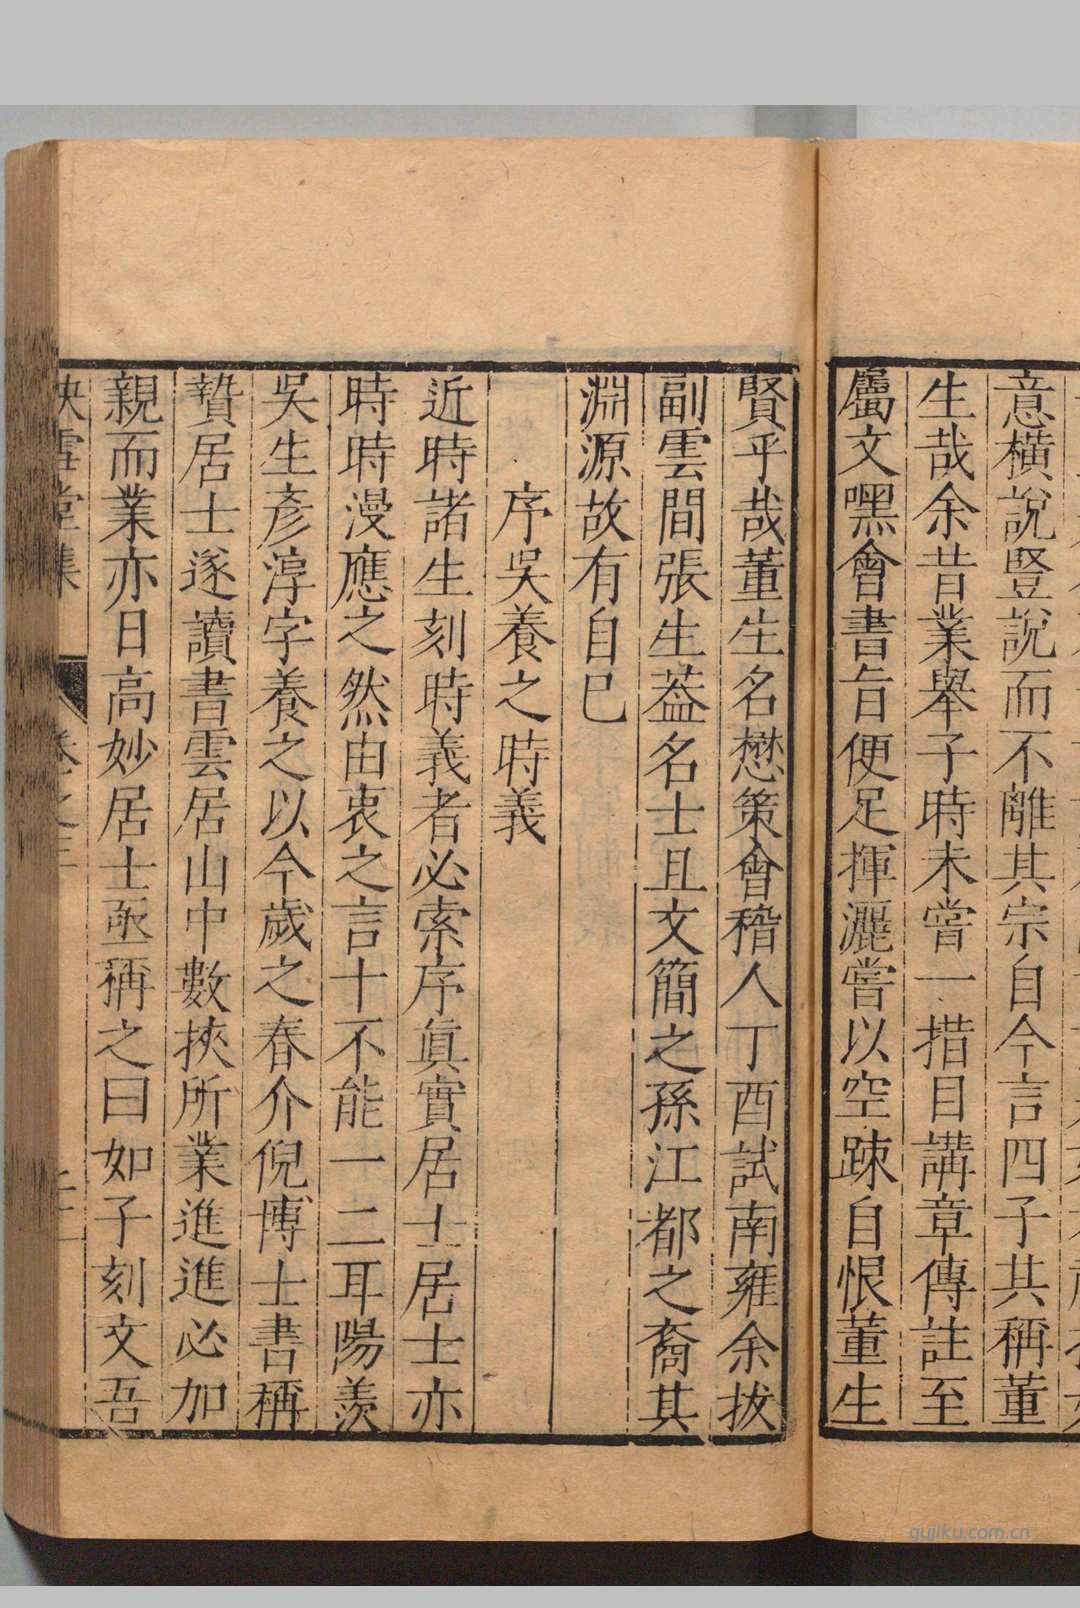 意橫說豎說而不離其宗自今言四子其稱董
生哉余昔業舉子時未嘗一措目講章傳註至
屬文嘿會書旨便足揮灑嘗以空踈自恨董生
賢乎哉董生名懋策會稽人丁酉試南雍余拔
副雲間張生葢名士且文簡之孫江都之裔其
淵源故有自巳
序吳養之時義
近時諸生刻時義者必索序眞實居士居士亦
時時漫應之然由衷之言十不能一二耳陽羨
吳生彥淳字養之以今歲之春介倪博士書稱
贄居士遂讀書雲居山中數挾所業進進必加
親而業亦日高妙居士亟稱之曰如子刻文吾
快雪堂集
卷之三
gujiku.com.cn